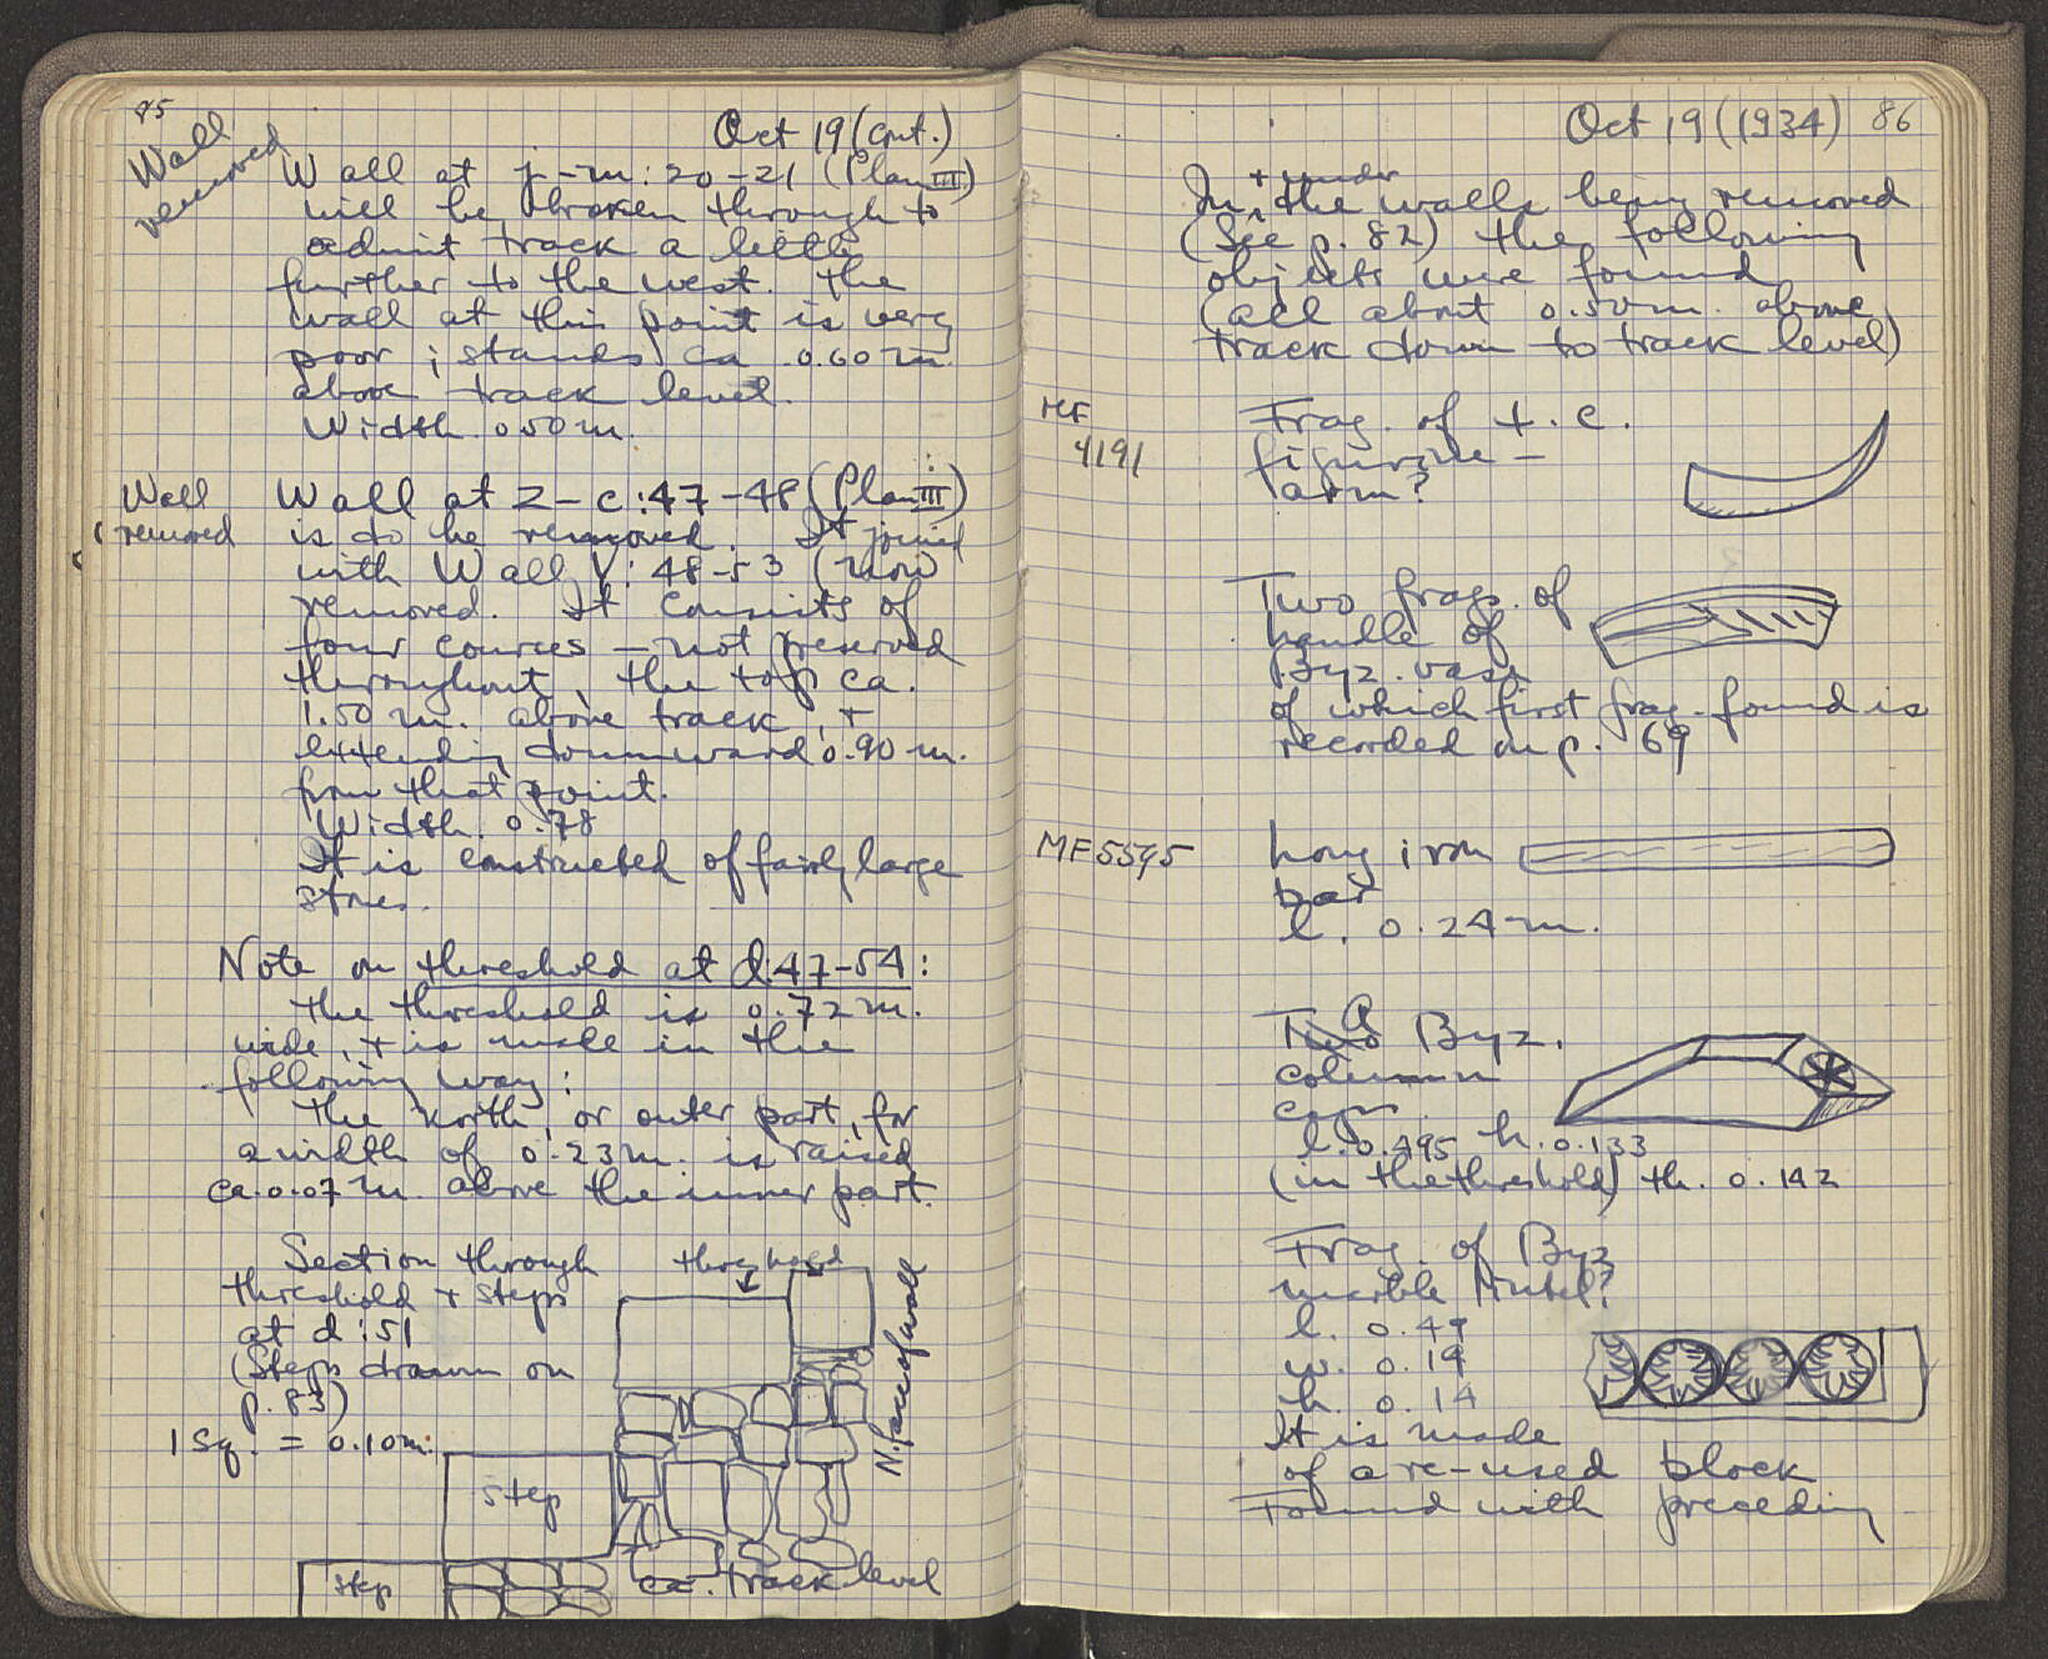 85
Oct 19 (Cont.)
Wall
removed
Wall at j-m: 20-21 (Plan III)
will be broken through to
admit track a little
further to the west. The
wall at this point is very
poor; stands ca 0.60 m.
above track level.
Width. 0.50 m.
Wall
removed
Wall at z-c: 47-48 (Plan III)
is to be removed. It joined
with Wall Y: 48-53 (now
removed. It consists of
four cources — not preserved
throughout, the top ca.
1.50 m. above track, +
extending downward 0.90 m.
from that point.
Width. 0.78
It is constructed of fairly large
stones.
Note on threshold at d:47-54:
The threshold is 0.72 m.
wide, + is made in the
following way:
The North, or outer part, for
a width of 0.23 m. is raised
ca. 0.07 m. above the inner part.
Section through
threshold + steps
at d:51
(Steps drawn on
p. 83)
1 Sq. = 0.10 m.
threshold
N. face of wall
step
step
ca. track level
Oct 19 (1934) 86
+ under
In ^ the walls being removed
(See p. 82) the following
objects were found
(all about 0.50 m. above
track down to track level)
MF
4191
Frag. of t.c.
figurine —
arm?
Two frags. of
handle of
Byz. vase
of which first frag. found is
recorded on p. 69
MF 5595
Long iron
bar
l. 0.24 m.
A
Two Byz.
column
caps
l. 0.495 h. 0.133
(in the threshold) th. 0.142
Frag. of Byz
marble lintel?
l. 0.49
w. 0.19
h. 0.14
It is made
of a re-used block
Found with preceding